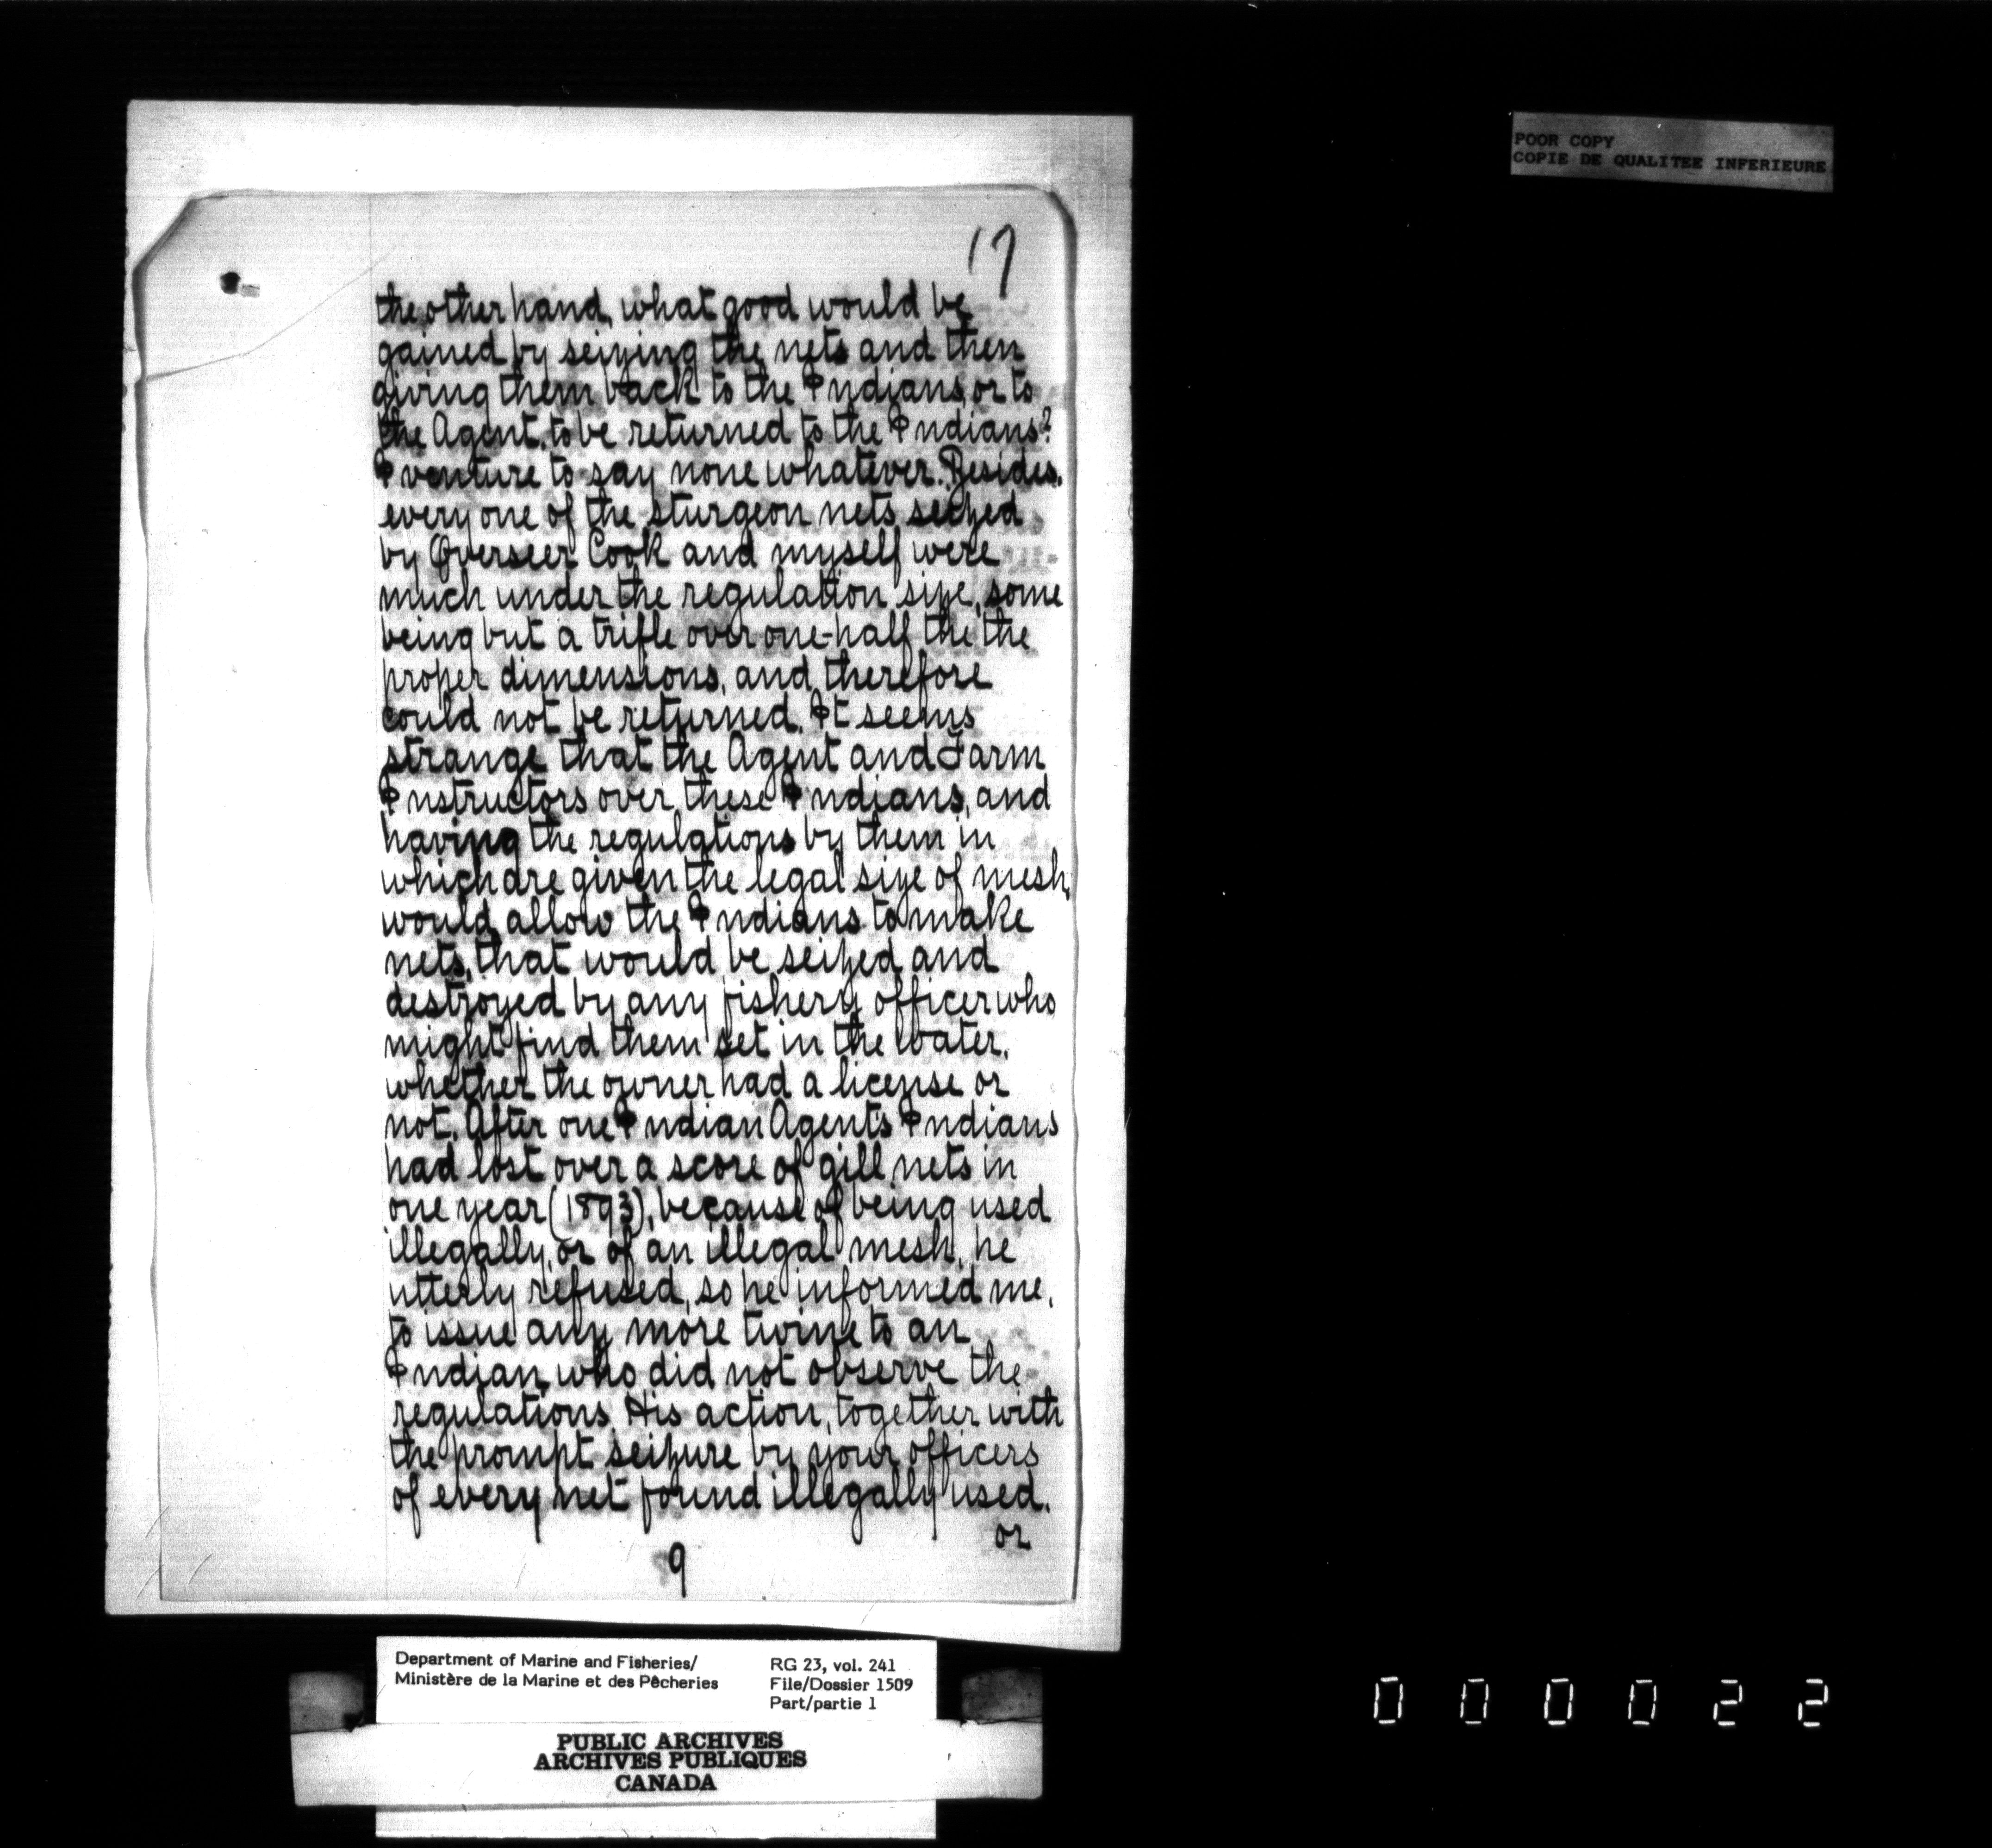 POOR COPY
COPIE DE QUALITEE INFERIEURE
17
the other hand, what good would be
gained by seizing the nets and then
giving them back to the Indians, or to
the Agent, to be returned to the Indians?
I venture to say none whatever. Besides,
every one of the sturgeon nets seized
by Overseer Cook and myself were
much under the regulation size, some
being but a trifle over one-half the the
proper dimensions, and therefore
could not be returned. It seems
strange that the Agent and Farm
Instructors over these Indians, and
having the regulations by them in
which are given the legal size of mesh,
would allow the Indians to make
nets, that would be seized and
destroyed by any fishery officer who
might find them set in the water,
whether the owner had a license or
not. After one Indian Agent's Indians
had lost over a score of gill nets in
one year (1893), because of being used
illegally, or of an illegal mesh, he
utterly refused, so he informed me,
to issue any more twine to an
Indian, who did not observe the
regulations. His action, together with
the prompt seizure by your officers
of every net found illegally used,
or
9
Department of Marine and Fisheries/
Ministère de la Marine et des Pêcheries
RG 23, vol. 241
File/Dossier 1509
Part/partie 1
PUBLIC ARCHIVES
ARCHIVES PUBLIQUES
CANADA
000022